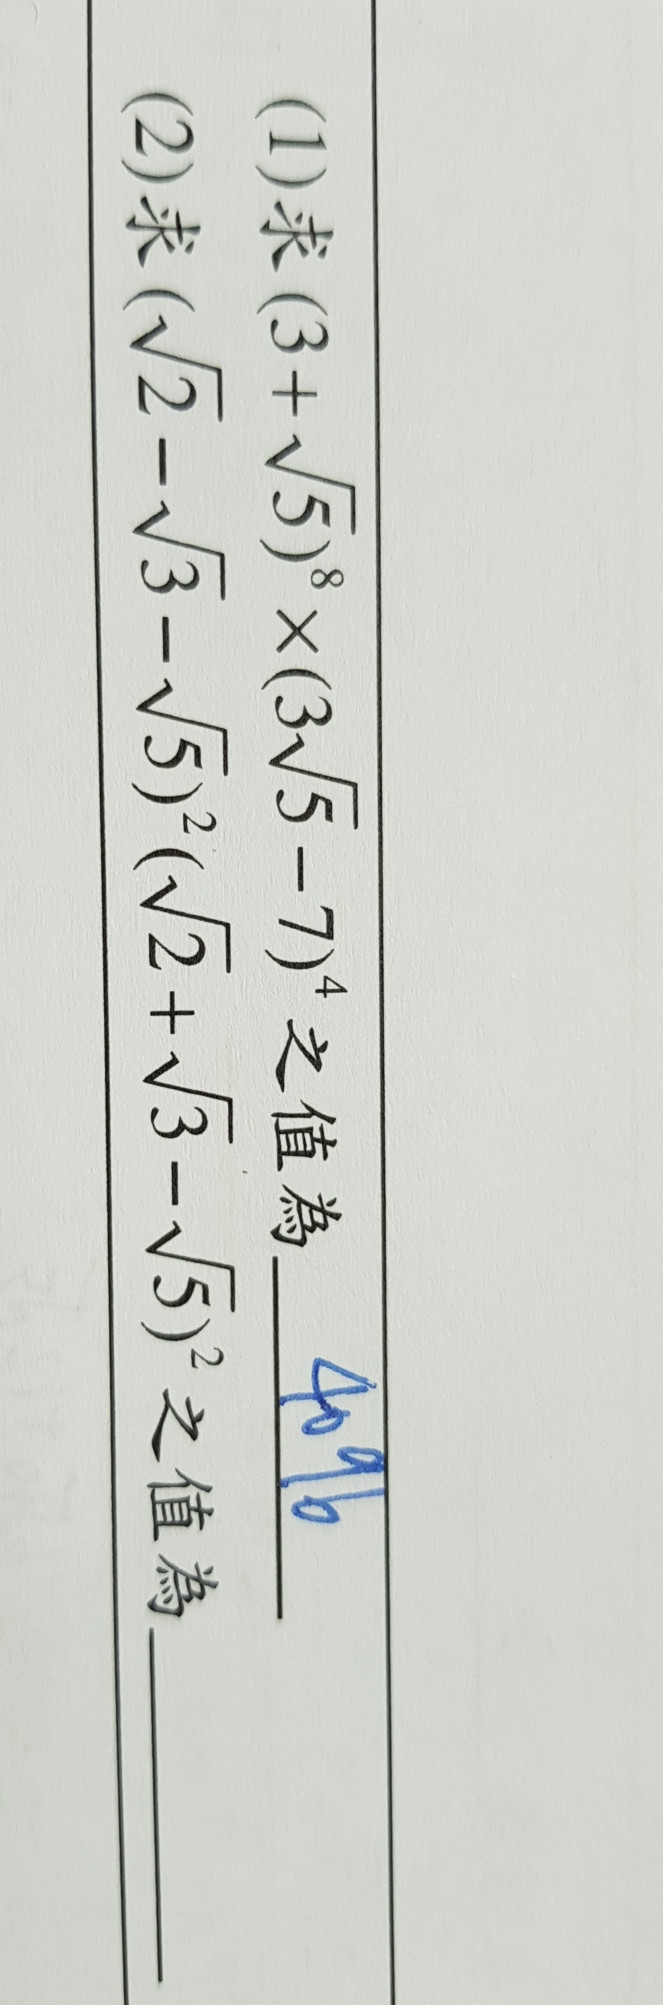 (1)求(3+√5)⁸×(3√5-7)⁴之值為 4096
(2)求(√2-√3-√5)²(√2+√3-√5)²之值為